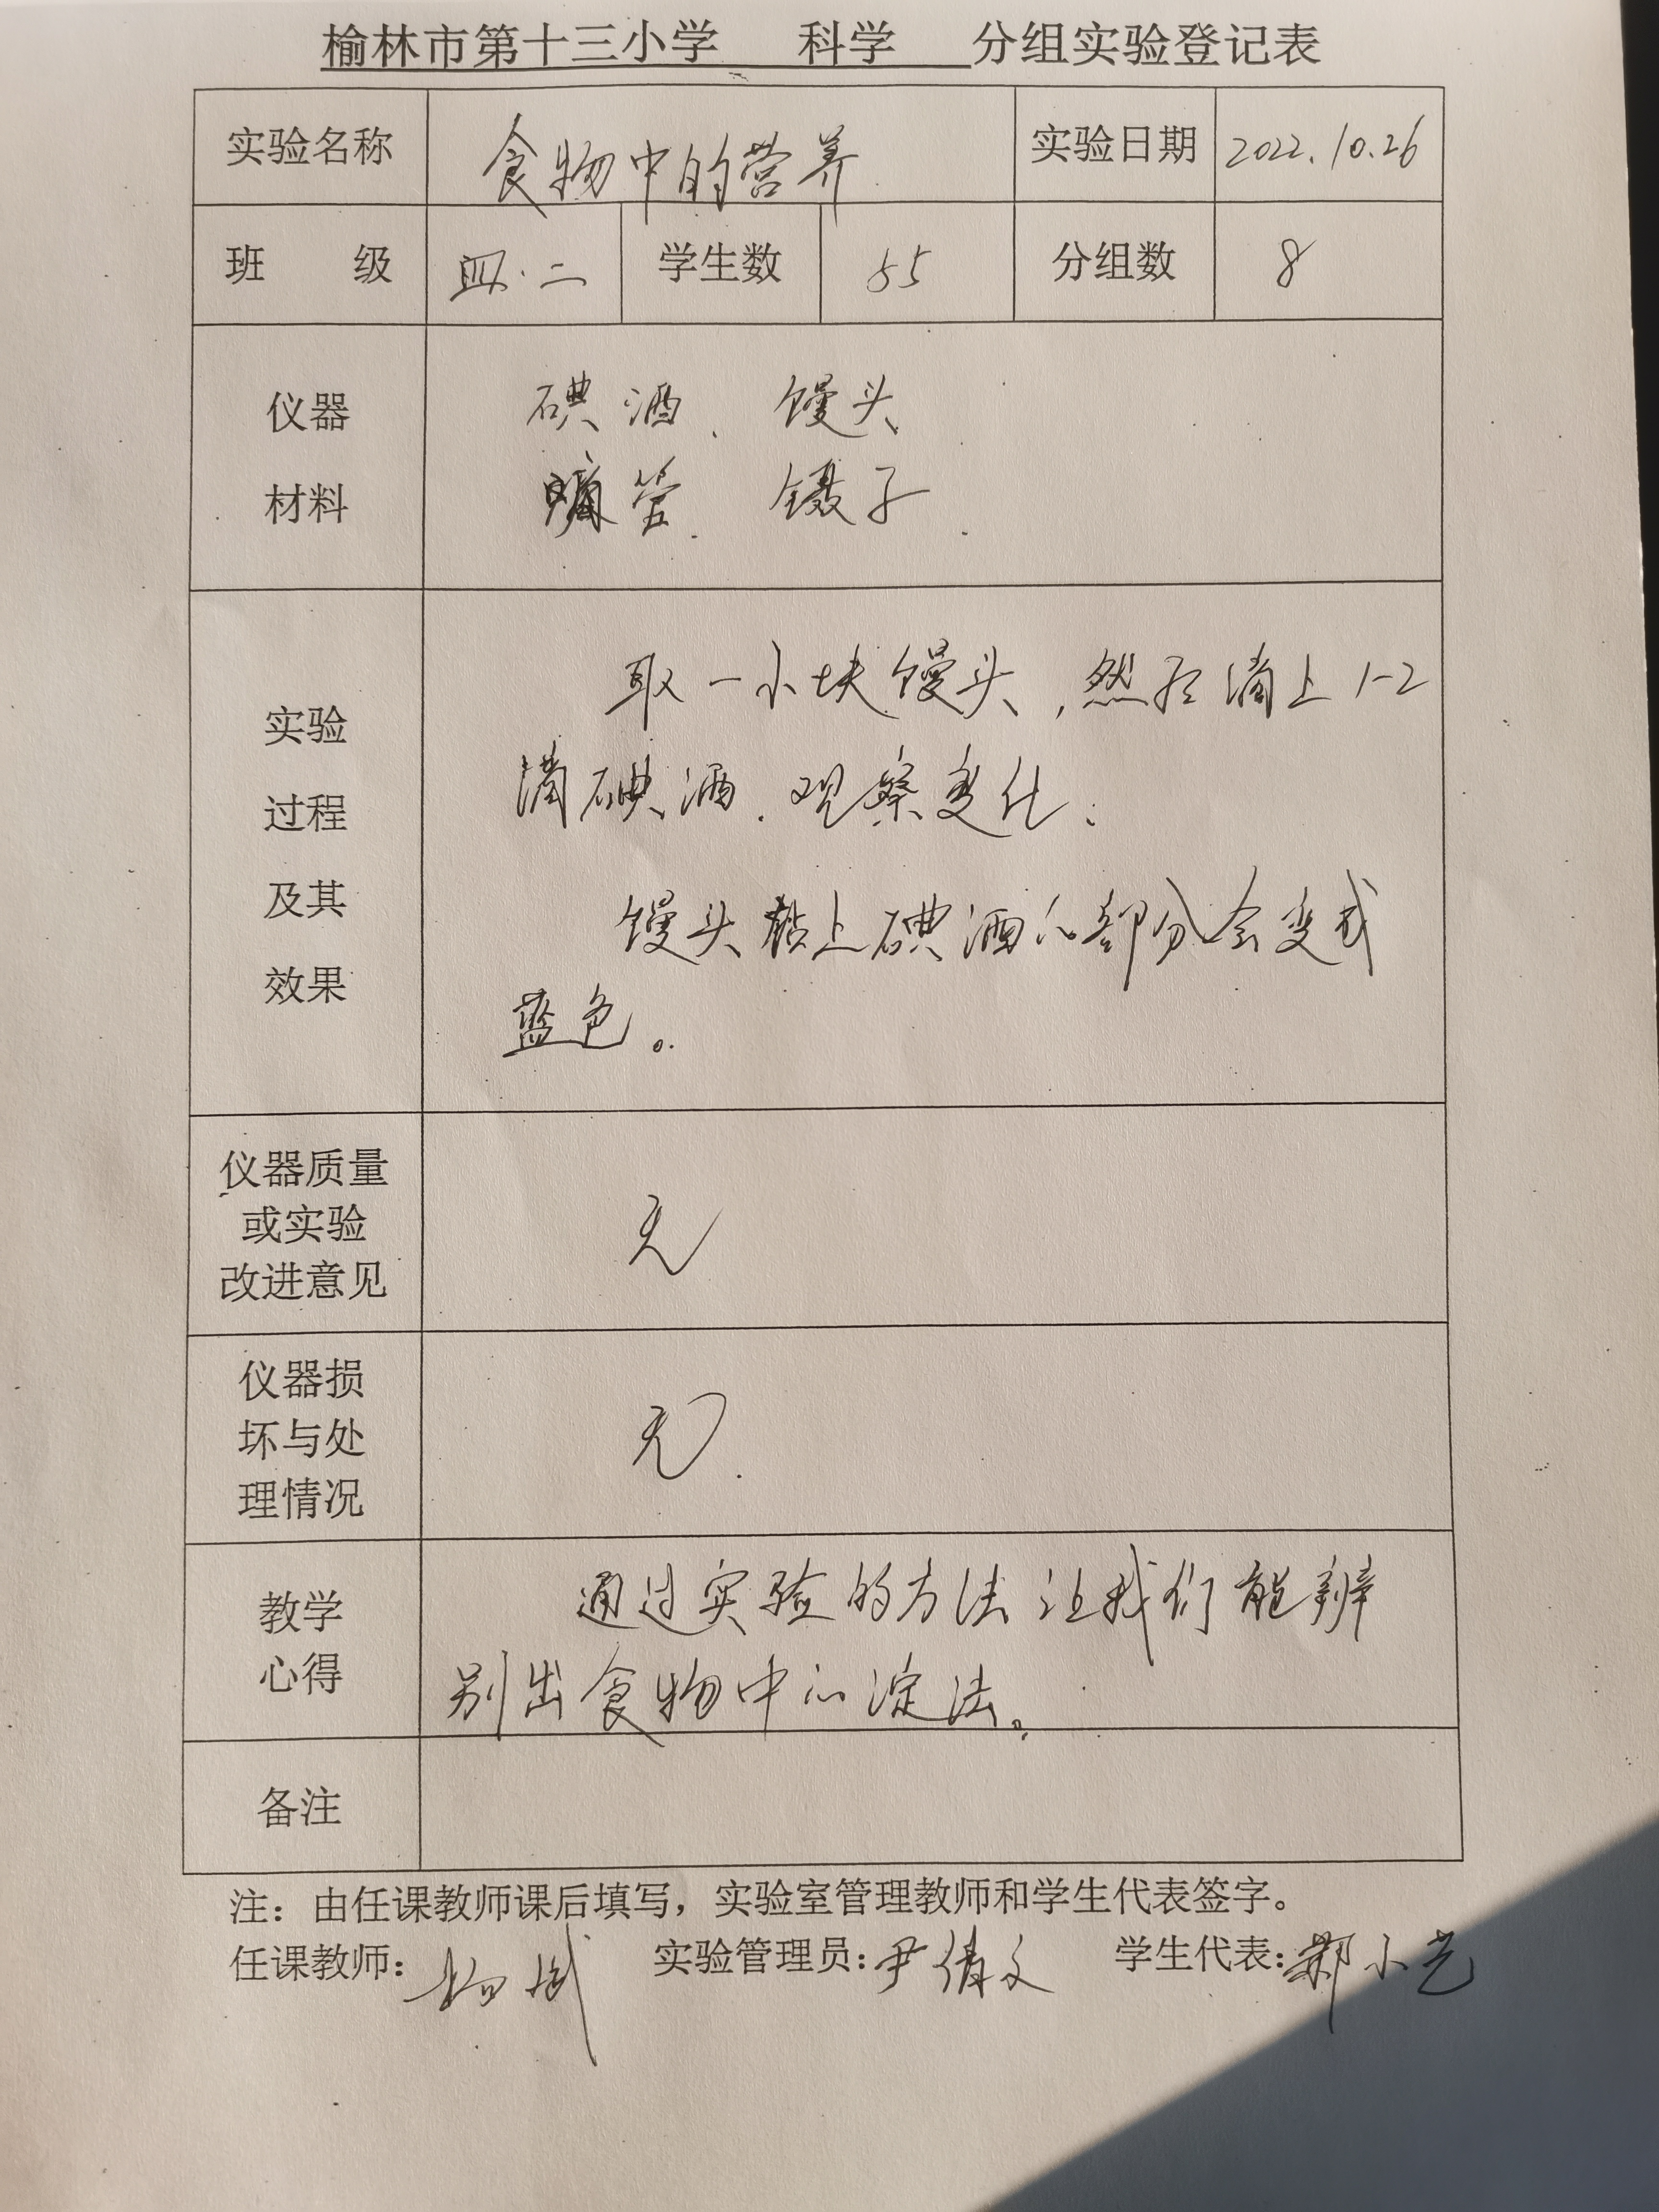 榆林市第十三小学 科学 分组实验登记表
实验名称 食物中的营养 实验日期 2022.10.26
班 级 四.二 学生数 55 分组数 8
仪器
材料
碘酒、馒头
滴管、镊子.
实验
过程
及其
效果
取一小块馒头,然后滴上1-2
滴碘酒.观察变化.
馒头粘上碘酒的部分会变成
蓝色。
仪器质量
或实验
改进意见
无
仪器损
坏与处
理情况
无.
教学
心得
通过实验的方法让我们能辨
别出食物中的淀法。
备注
注：由任课教师课后填写，实验室管理教师和学生代表签字。
任课教师: 实验管理员:尹倩文 学生代表:郝小艺